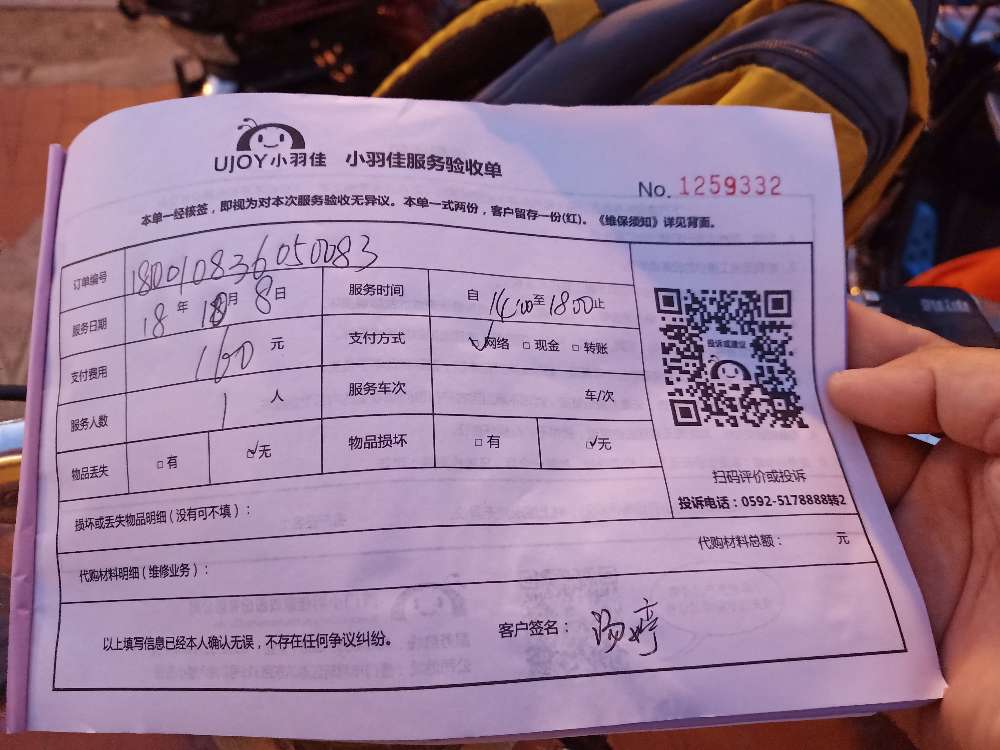 UJOY小羽佳 小羽佳服务验收单
No. 1259332
本单一经核签，即视为对本次服务验收无异议。本单一式两份，客户留存一份(红)。《维保须知》详见背面。
订单编号 180010836050083
服务日期 18年 10月 8日 服务时间 自 14:00 至 18:00 止
支付费用 160 元 支付方式 ☑网络 □现金 □转账
服务人数 1 人 服务车次 车/次
物品丢失 □有 ☑无 物品损坏 □有 ☑无
投诉或建议
扫码评价或投诉
投诉电话：0592-5178888转2
损坏或丢失物品明细（没有可不填）：
代购材料明细（维修业务）： 代购材料总额： 元
以上填写信息已经本人确认无误，不存在任何争议纠纷。 客户签名： 汤婷